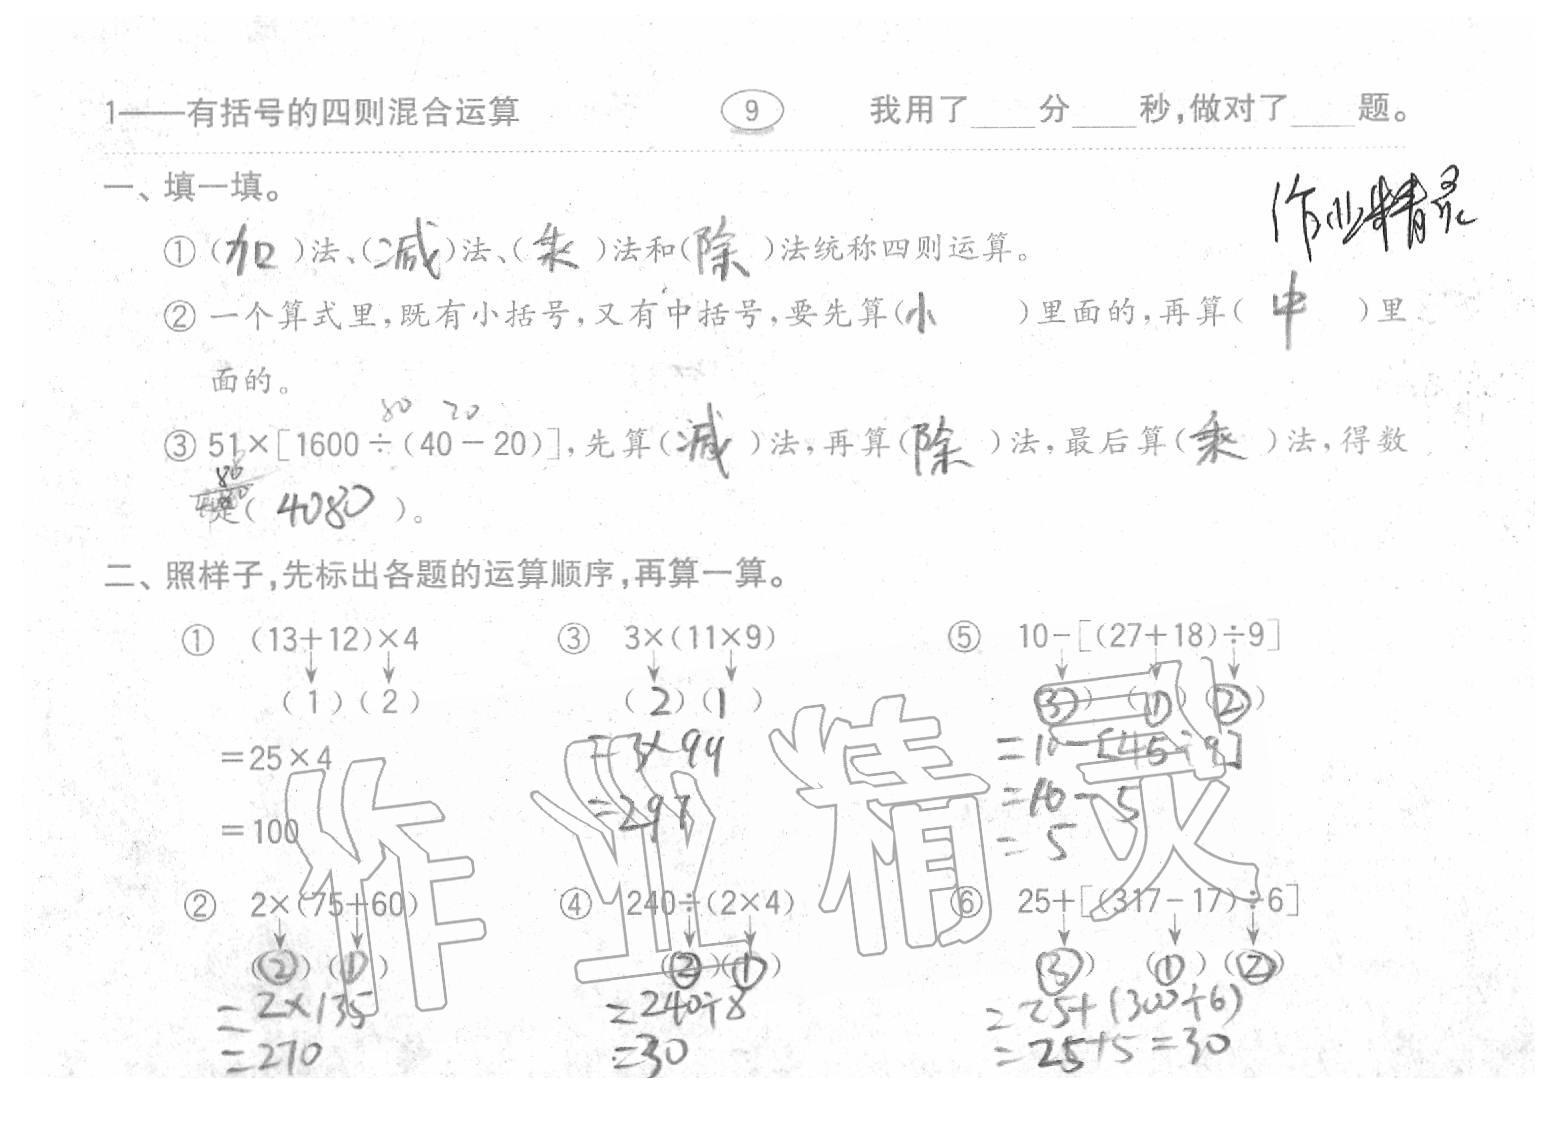 1——有括号的四则混合运算 9 我用了____分____秒,做对了____题。
一、填一填。
作业精灵
①(加)法、(减)法、(乘)法和(除)法统称四则运算。
②一个算式里,既有小括号,又有中括号,要先算(小)里面的,再算(中)里
面的。
80 20
③51×[1600÷(40-20)],先算(减)法,再算(除)法,最后算(乘)法,得数
是(4080)。
二、照样子,先标出各题的运算顺序,再算一算。
① (13+12)×4 ③ 3×(11×9) ⑤ 10-[(27+18)÷9]
(1)(2) (2)(1) (③)(①)(②)
=25×4 =3×99 =10-[45÷9]
=100 =297 =10-5
=5
作业精灵
② 2×(75+60) ④ 240÷(2×4) ⑥ 25+[(317-17)÷6]
(②)(①) (②)(①) (③)(①)(②)
=2×135 =240÷8 =25+(300÷6)
=270 =30 =25+5=30